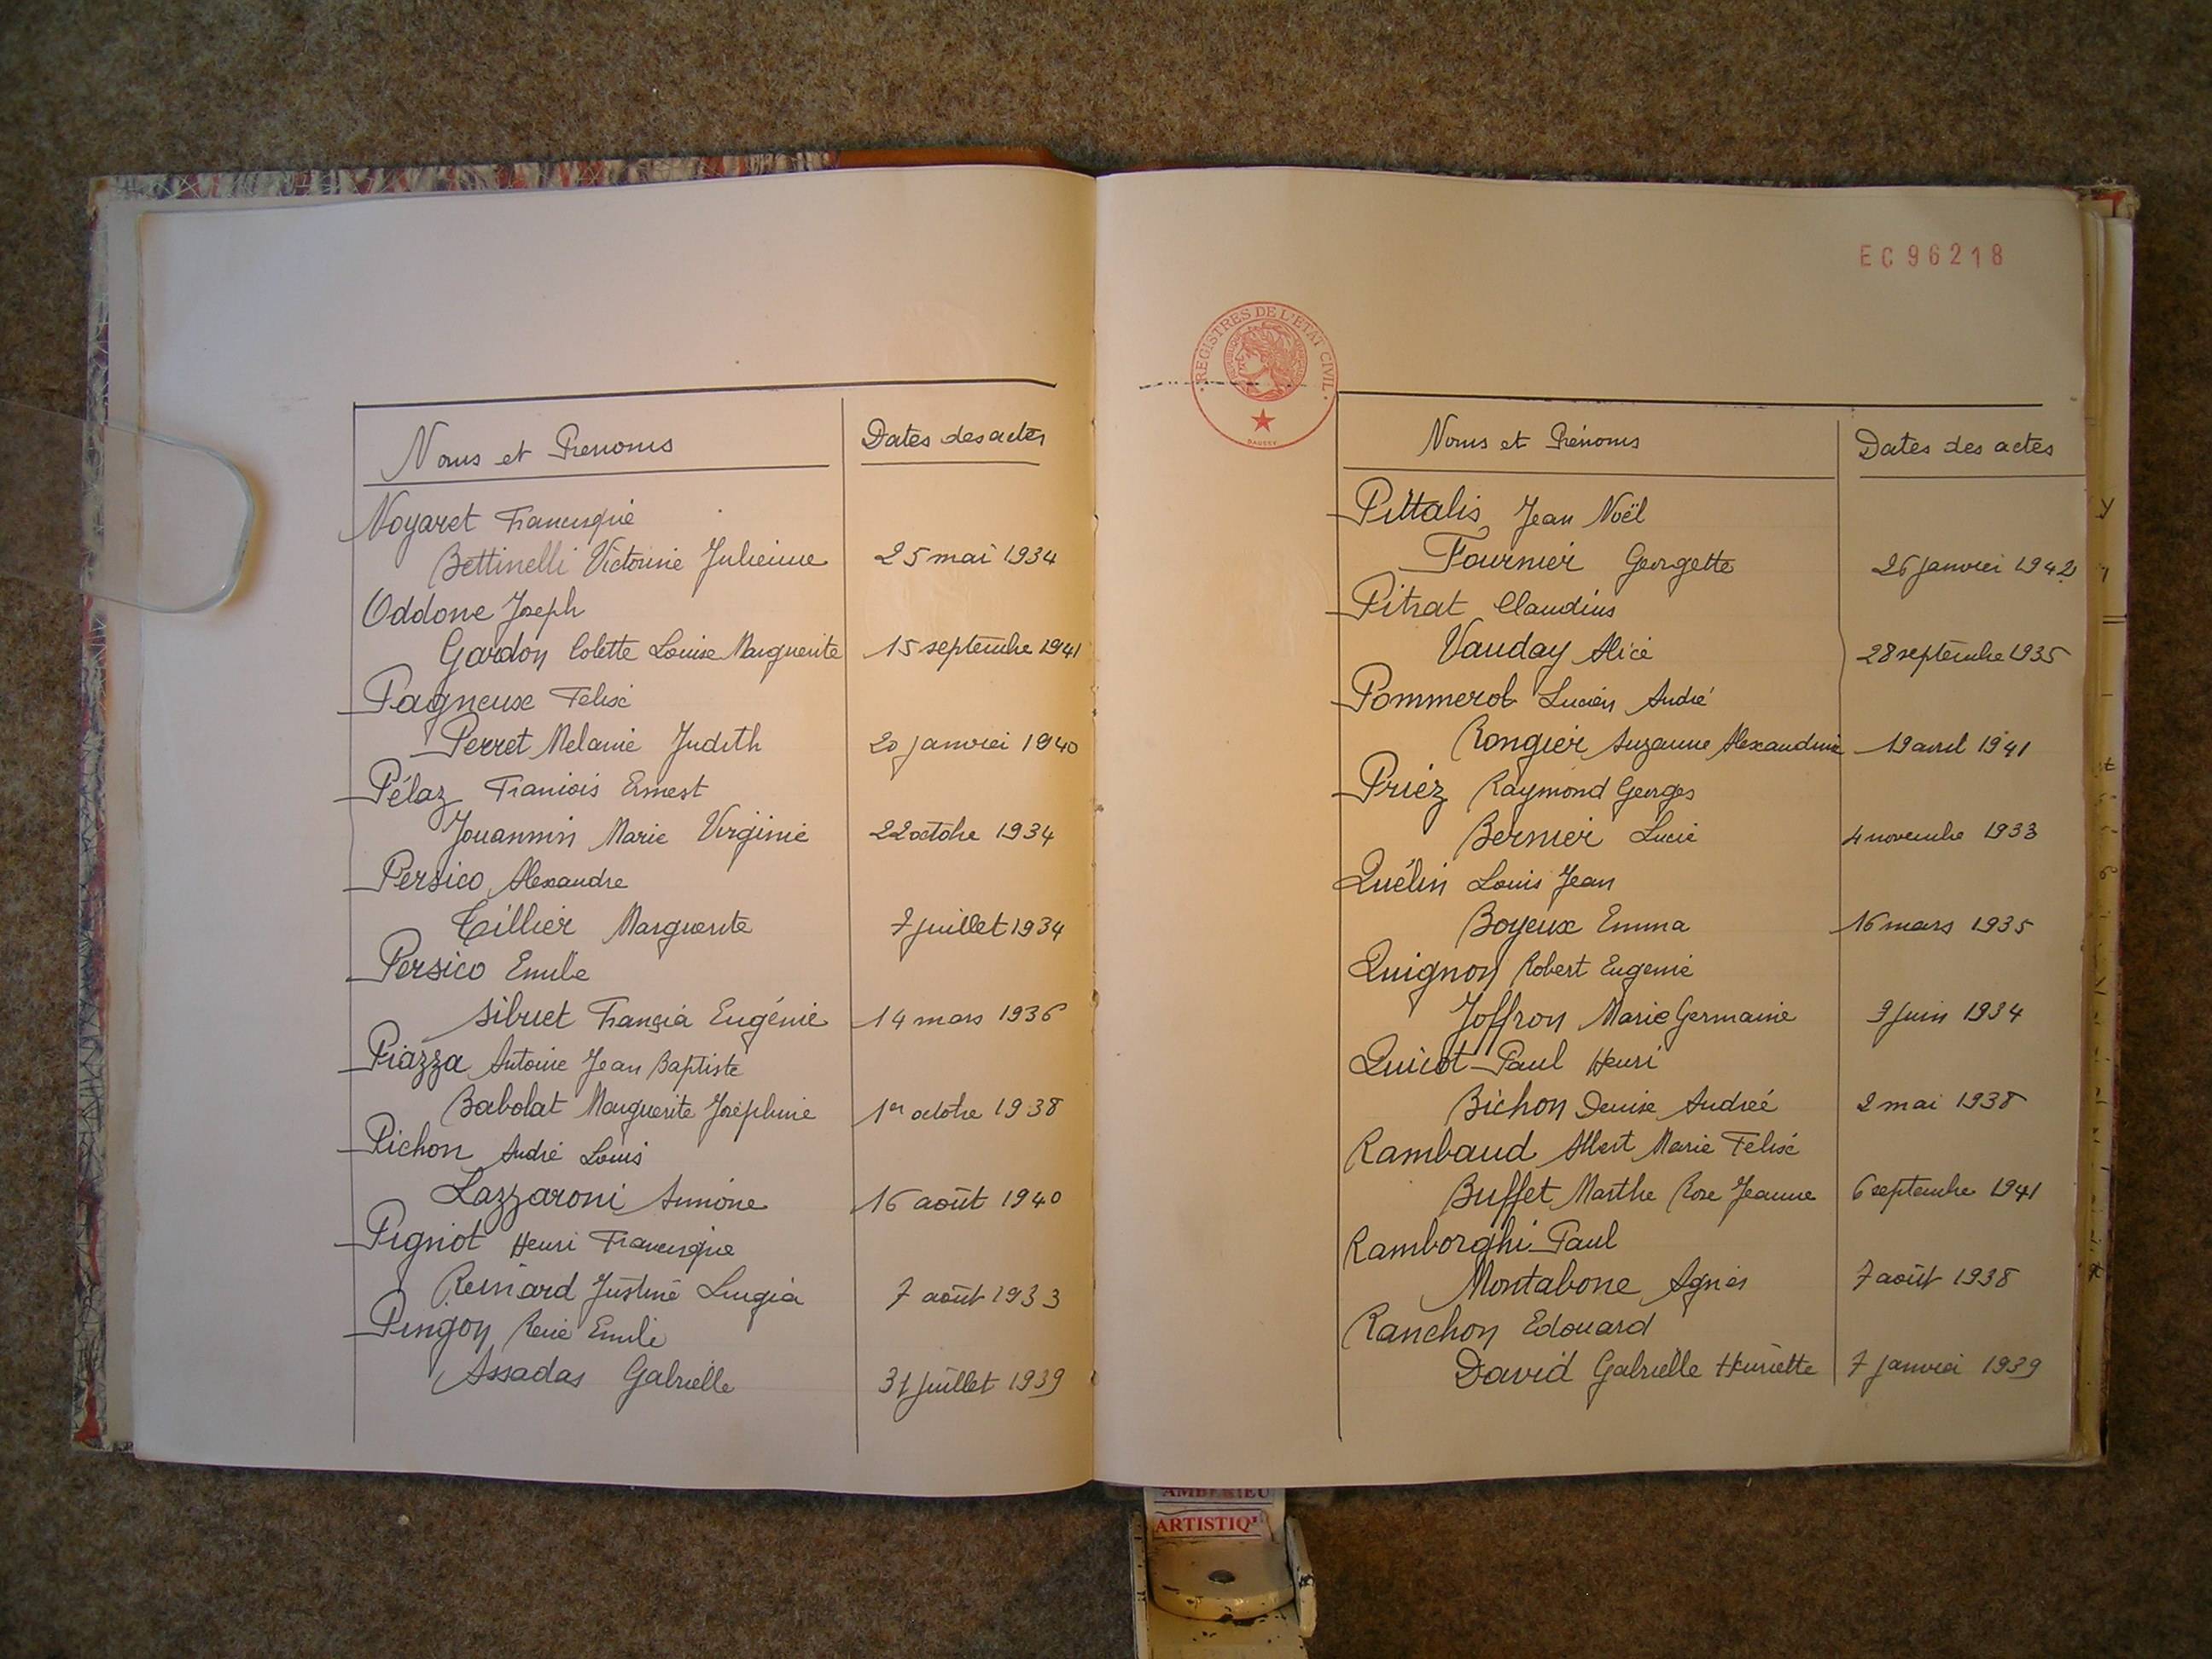 Noms et Prenoms Dates des actes
Noyaret Francisque
Bettinelli Victorine Julienne 25 mai 1934
Oddone Joseph
Gardon Colette Louise Marguerite 15 septembre 1941
Pagneux Felix
Perret Melanie Judith 20 janvier 1940
Pélaz François Ernest
Jouannin Marie Virginie 22 octobre 1934
Persico Alexandre
Tillier Marguerite 7 juillet 1934
Persico Emile
Sibuet Eugénie 14 mars 1936
Piazza Antoine Jean Baptiste
Babolat Marguerite Joséphine 1er octobre 1938
Pichon André Louis
Lazzaroni Simone 16 août 1940
Pignot Henri Francisque
Justine 7 août 1933
Pingon René Emile
Assadas Gabrielle 31 juillet 1939
EC96218
REGISTRES DE L'ETAT CIVIL
Noms et Prénoms Dates des actes
Pittalis Jean Noël
Fournier Georgette 26 janvier 1942
Pitrat Claudius
Vauday Alice 28 septembre 1935
Pommerol Lucien André
Rongier Suzanne Alexandrine 19 avril 1941
Priez Raymond Georges
Bernier Lucie 4 novembre 1933
Quélin Louis Jean
Boyeux Emma 16 mars 1935
Quignon Robert Eugene
Joffron Marie Germaine 9 juin 1934
Quicot Paul Henri
Bichon Denise Andrée 2 mai 1938
Rambaud Albert Marie Felix
Buffet Marthe Rose Jeanne 6 septembre 1941
Ramborghi Paul
Montabone Agnès 7 août 1938
Ranchon Edouard
David Gabrielle Henriette 7 janvier 1939
AMBERIEU
ARTISTIQ